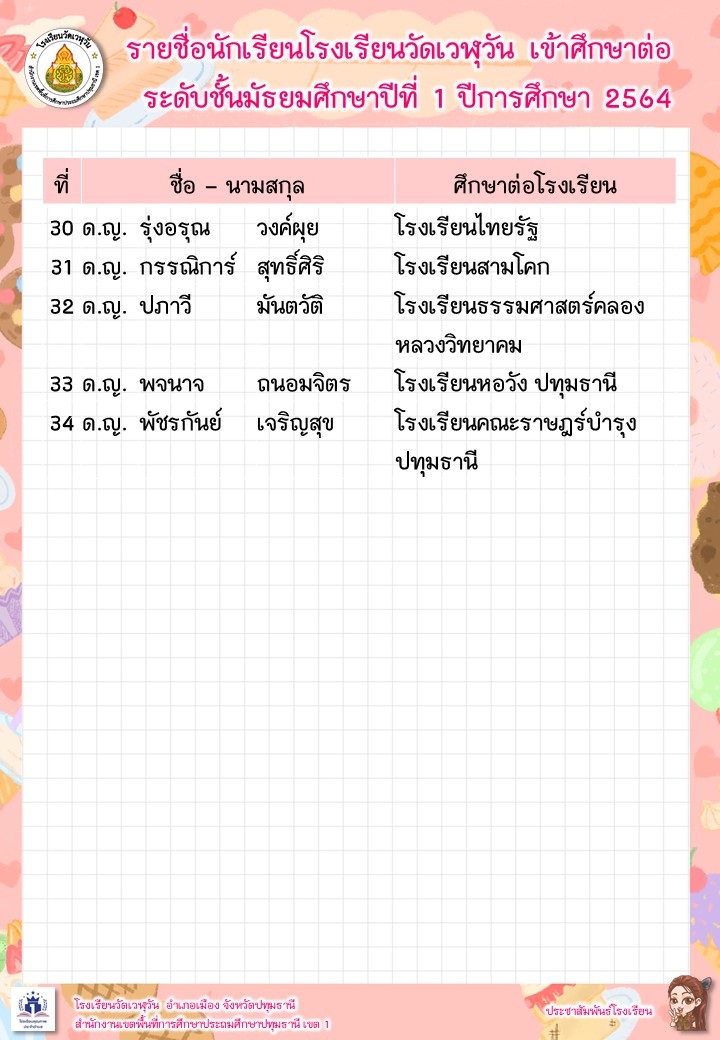 รายชื่อนักเรียนโรงเรียนวัดเวฬุวัน เข้าศึกษาต่อ
ระดับชั้นมัธยมศึกษาปีที่ 1 ปีการศึกษา 2564
โรงเรียนวัดเวฬุวัน
สำนักงานเขตพื้นที่การศึกษาประถมศึกษาปทุมธานี เขต 1
ที่ ชื่อ – นามสกุล ศึกษาต่อโรงเรียน
30 ด.ญ. รุ่งอรุณ วงค์ผุย โรงเรียนไทยรัฐ
31 ด.ญ. กรรณิการ์ สุทธิ์ศิริ โรงเรียนสามโคก
32 ด.ญ. ปภาวี มันตวัติ โรงเรียนธรรมศาสตร์คลอง
หลวงวิทยาคม
33 ด.ญ. พจนาจ ถนอมจิตร โรงเรียนหอวัง ปทุมธานี
34 ด.ญ. พัชรกันย์ เจริญสุข โรงเรียนคณะราษฎร์บำรุง
ปทุมธานี
โรงเรียนวัดเวฬุวัน อำเภอเมือง จังหวัดปทุมธานี
สำนักงานเขตพื้นที่การศึกษาประถมศึกษาปทุมธานี เขต 1
ประชาสัมพันธ์โรงเรียน